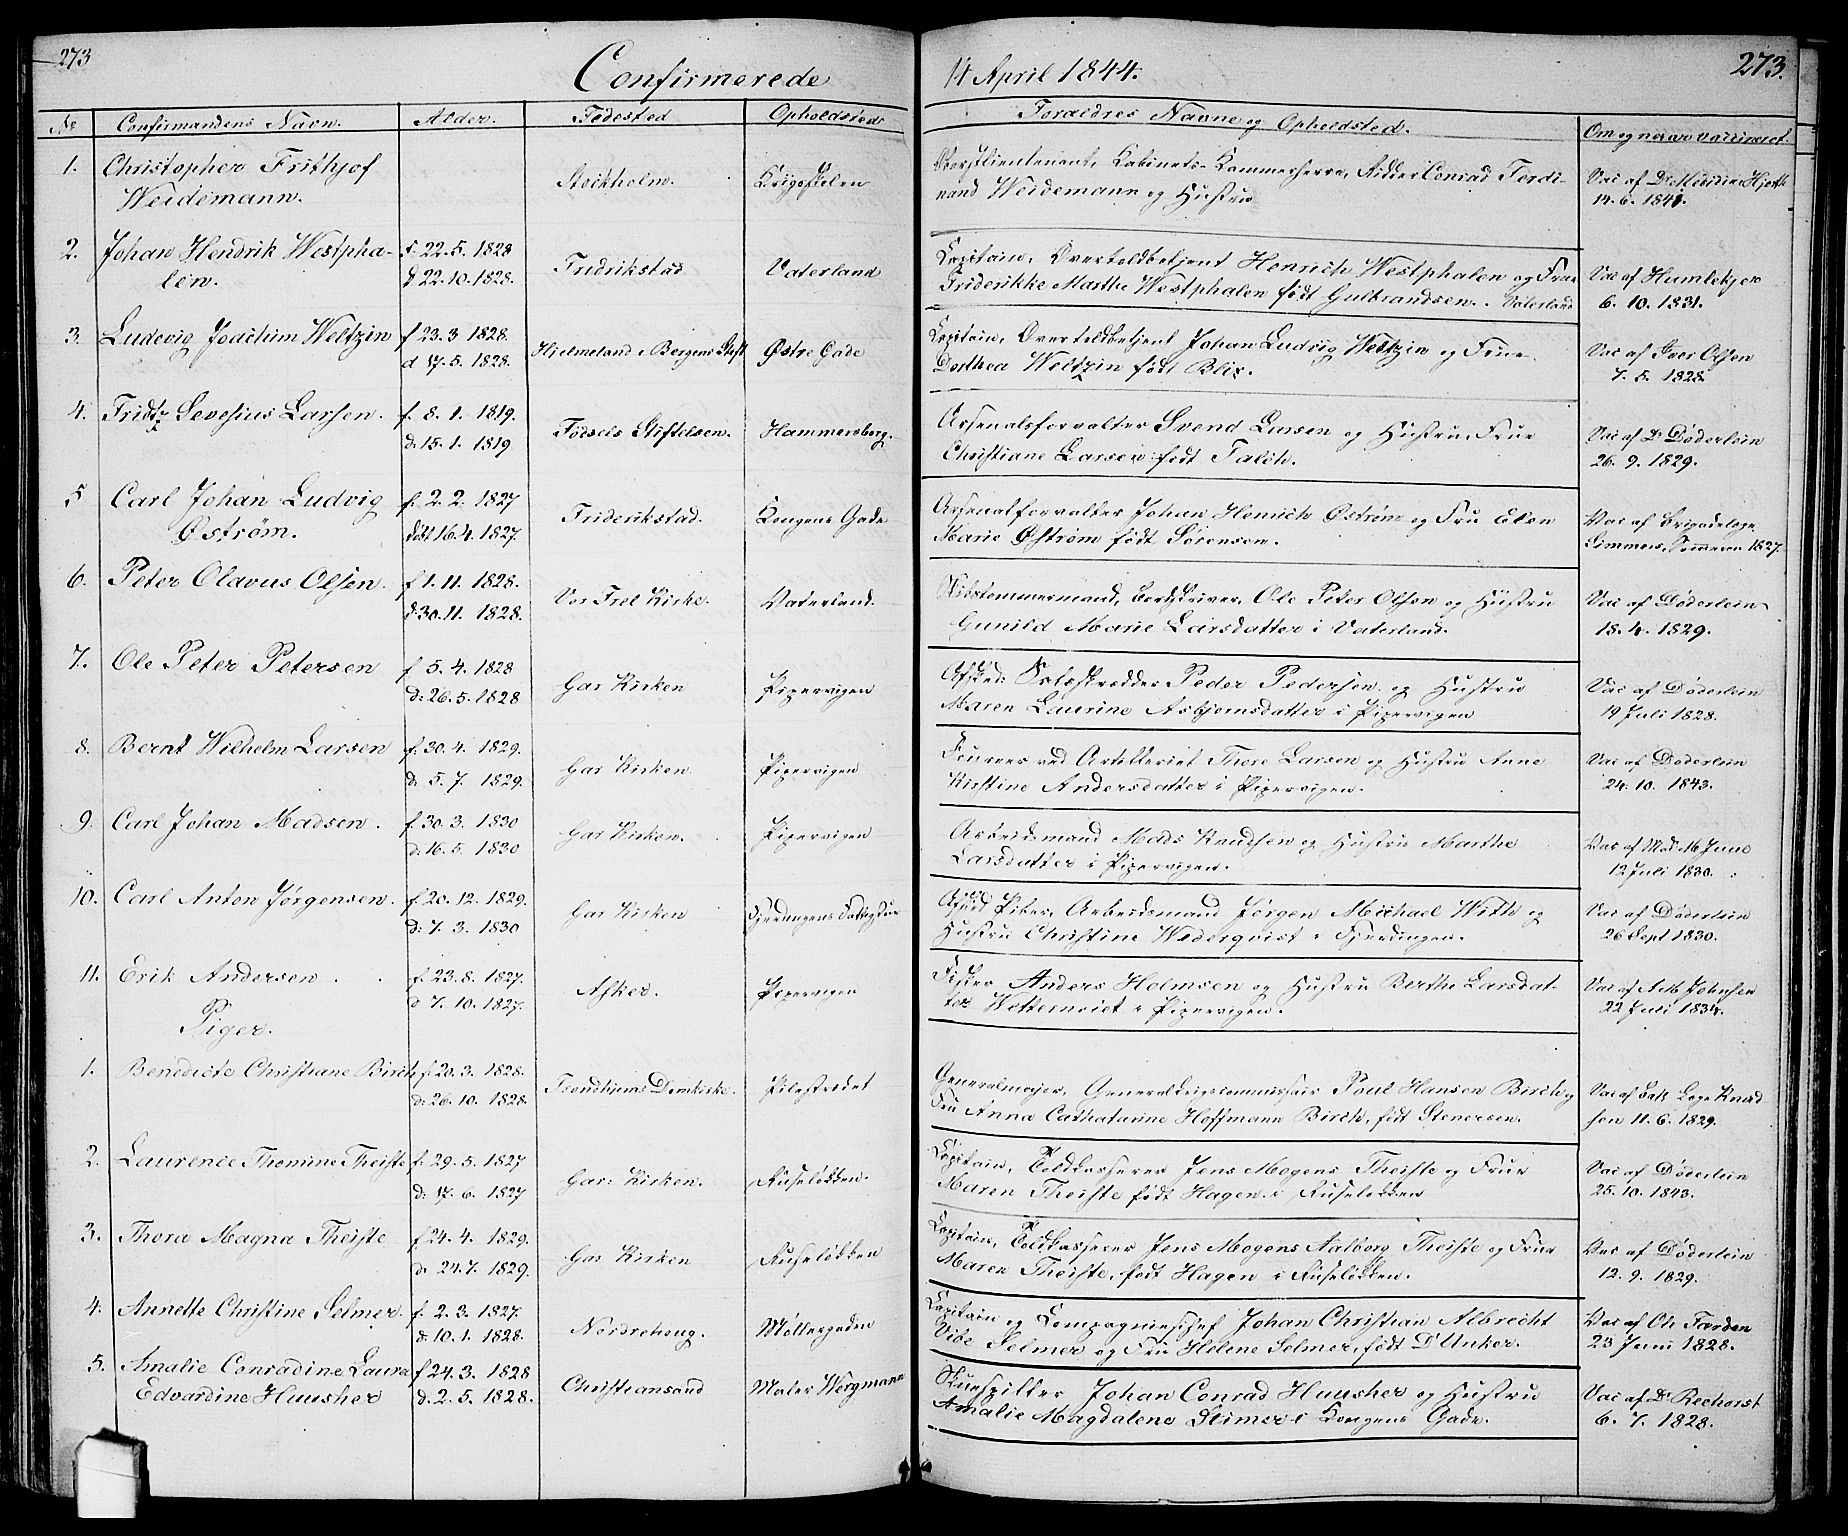 273
Confirmerede
14 April 1844.
273.
No
Confirmandens Navn.
Alder.
Fødested
Opholdsted
Foraeldres Navne og Opholdsted.
Om og naar vaccineret.
1. Christopher Frithjof
Weidemann.
Stockholm.
Krigsskolen
Oberstlieutenant, Kabinets-Kammerherre, Ridder Conrad Ferdi-
nand Weidemann og Hustru
Vac af Dr Hjorth
14. 6. 1841.
2. Johan Hendrik Westpha-
len.
f. 22. 5. 1828
d 22. 10. 1828.
Fridrikstad
Vaterland
Kapitain, Overtoldbetjent Henrich Westphalen og Frue
Friderikke Marthe Westphalen født Gulbrandsen. Vaterland
Vac af Humlekjer
6. 10. 1831.
3. Ludevig Joachim Weltzin
f 23. 3 1828.
d 17. 5. 1828.
Hjelmeland i Bergens Stift
Østre Gade
Kapitain, Overtoldbetjent Johan Ludvig Weltzin og Frue
Dorthea Weltzin født Blix.
Vac af Iver Olsen
7. 5. 1828.
4. Fridtz Sevesius Larsen.
f. 8. 1. 1819.
d. 15. 1. 1819
Fødsels Stiftelsen.
Hammersborg.
Arsenalsforvalter Svend Larsen og Hustru, Frue
Christiane Larsen født Falch.
Vac af Dr Døderlein
26. 9. 1829.
5 Carl Johan Ludvig
Østrøm.
f. 2. 2. 1827
døbt 16. 4. 1827.
Friderikstad.
Kongens Gade
Arsenalforvalter Johan Henrich Østrøm og Fru Elen
Marie Østrøm født Sørensen.
Vac af Brigadelæge
Simmers, Sommeren 1827.
6. Peter Olavus Olsen.
f 1. 11. 1828.
d. 30. 11. 1828.
Vor Frel Kirke.
Vaterland.
Skibstømmermand, Bordskriver, Ole Peter Olsen og Hustru
Gunild Marie Larsdatter i Vaterland.
Vac af Døderlein
18. 4. 1829.
7. Ole Peter Petersen
f 5. 4. 1828
d. 26. 5. 1828
Gar Kirken
Pipervigen
Afsked: Peder Pedersen og Hustru
Maren Laurine Asbjørnsdatter i Pipervigen
Vac af Døderlein
19 Juli 1828.
8. Bernt Wilhelm Larsen
f. 30. 4. 1829.
d. 5. 7. 1829.
Gar Kirken
Pipervigen
Foureer ved Artilleriet Thore Larsen og Hustru Anne
Kirstine Andersdatter i Pipervigen.
Vac af Døderlein
24. 10. 1843.
9. Carl Johan Madsen.
f. 30. 3. 1830
d. 16. 5. 1830
Gar Kirken.
Pipervigen
Arbeidsmand Mads Knudsen og Hustru Marthe
Larsdatter i Pipervigen.
Vac af Juul
12 Juli 1830.
10. Carl Anton Jørgensen.
f 20. 12. 1829.
d. 7. 3. 1830
Gar Kirken
Arbeidsmand Jørgen Michael With og
Hustru Christine Wederqvist i Fjerdingen.
Vac af Døderlein
26 Sept 1830.
11. Erik Andersen
f. 23. 8. 1827.
d 7. 10. 1827.
Asker.
Pipervigen
Fisker Anders Holmsen og Hustru Berthe Larsdat-
ter i Pipervigen.
Vac af Johnsen
22 Juli 1834.
Piger.
1. Benedicte Christiane Birch
f 20. 3. 1828.
d. 26. 10. 1828.
Trondhjems Domkirke.
Pilestrædet
Generalmajor, Generalkrigscommissair Poul Hansen Birch og
Fru Anna Catharinne Hoffmann Birch, født Stenersen.
Vac af Batt. Læge Knud-
sen 11. 6. 1829.
2. Laurence Thomine Theiste
f. 29. 5. 1827
d. 17. 6. 1827
Gar: Kirken.
Ruseløkken.
Kapitain, Toldkasserer Jens Mogens Theiste og Frue
Maren Theiste født Hagen i Ruseløkken
Vac af Døderlein
25. 10. 1843.
3. Thora Magna Theiste
f 24. 4. 1829.
d. 24. 7. 1829.
Gar Kirken
Ruseløkken
Kapitain, Toldkasserer Jens Mogens Aalborg Theiste og Frue
Maren Theiste, født Hagen i Ruseløkken.
Vac af Døderlein
12. 9. 1829.
4. Annette Christine Selmer.
f. 2. 3. 1827.
d. 10. 1. 1828.
Nordrehoug.
Møllergaden
Kapitain og Compagniechef Johan Christian Albrecht
Vibe Selmer og Fru Helene Selmer, født D'Unker.
Vac af Ole Færden
23 Juni 1828.
5. Amalie Conradine Laura
Edvardine Huusher
f 24. 3. 1828
d. 2. 5. 1828.
Christiansand
Maler Wergmann
Skuespiller Johan Conrad Huusher og Hustru
Amalie Magdalene Stimer i Kongens Gade.
Vac af Dr Rechorst
6. 7. 1828.